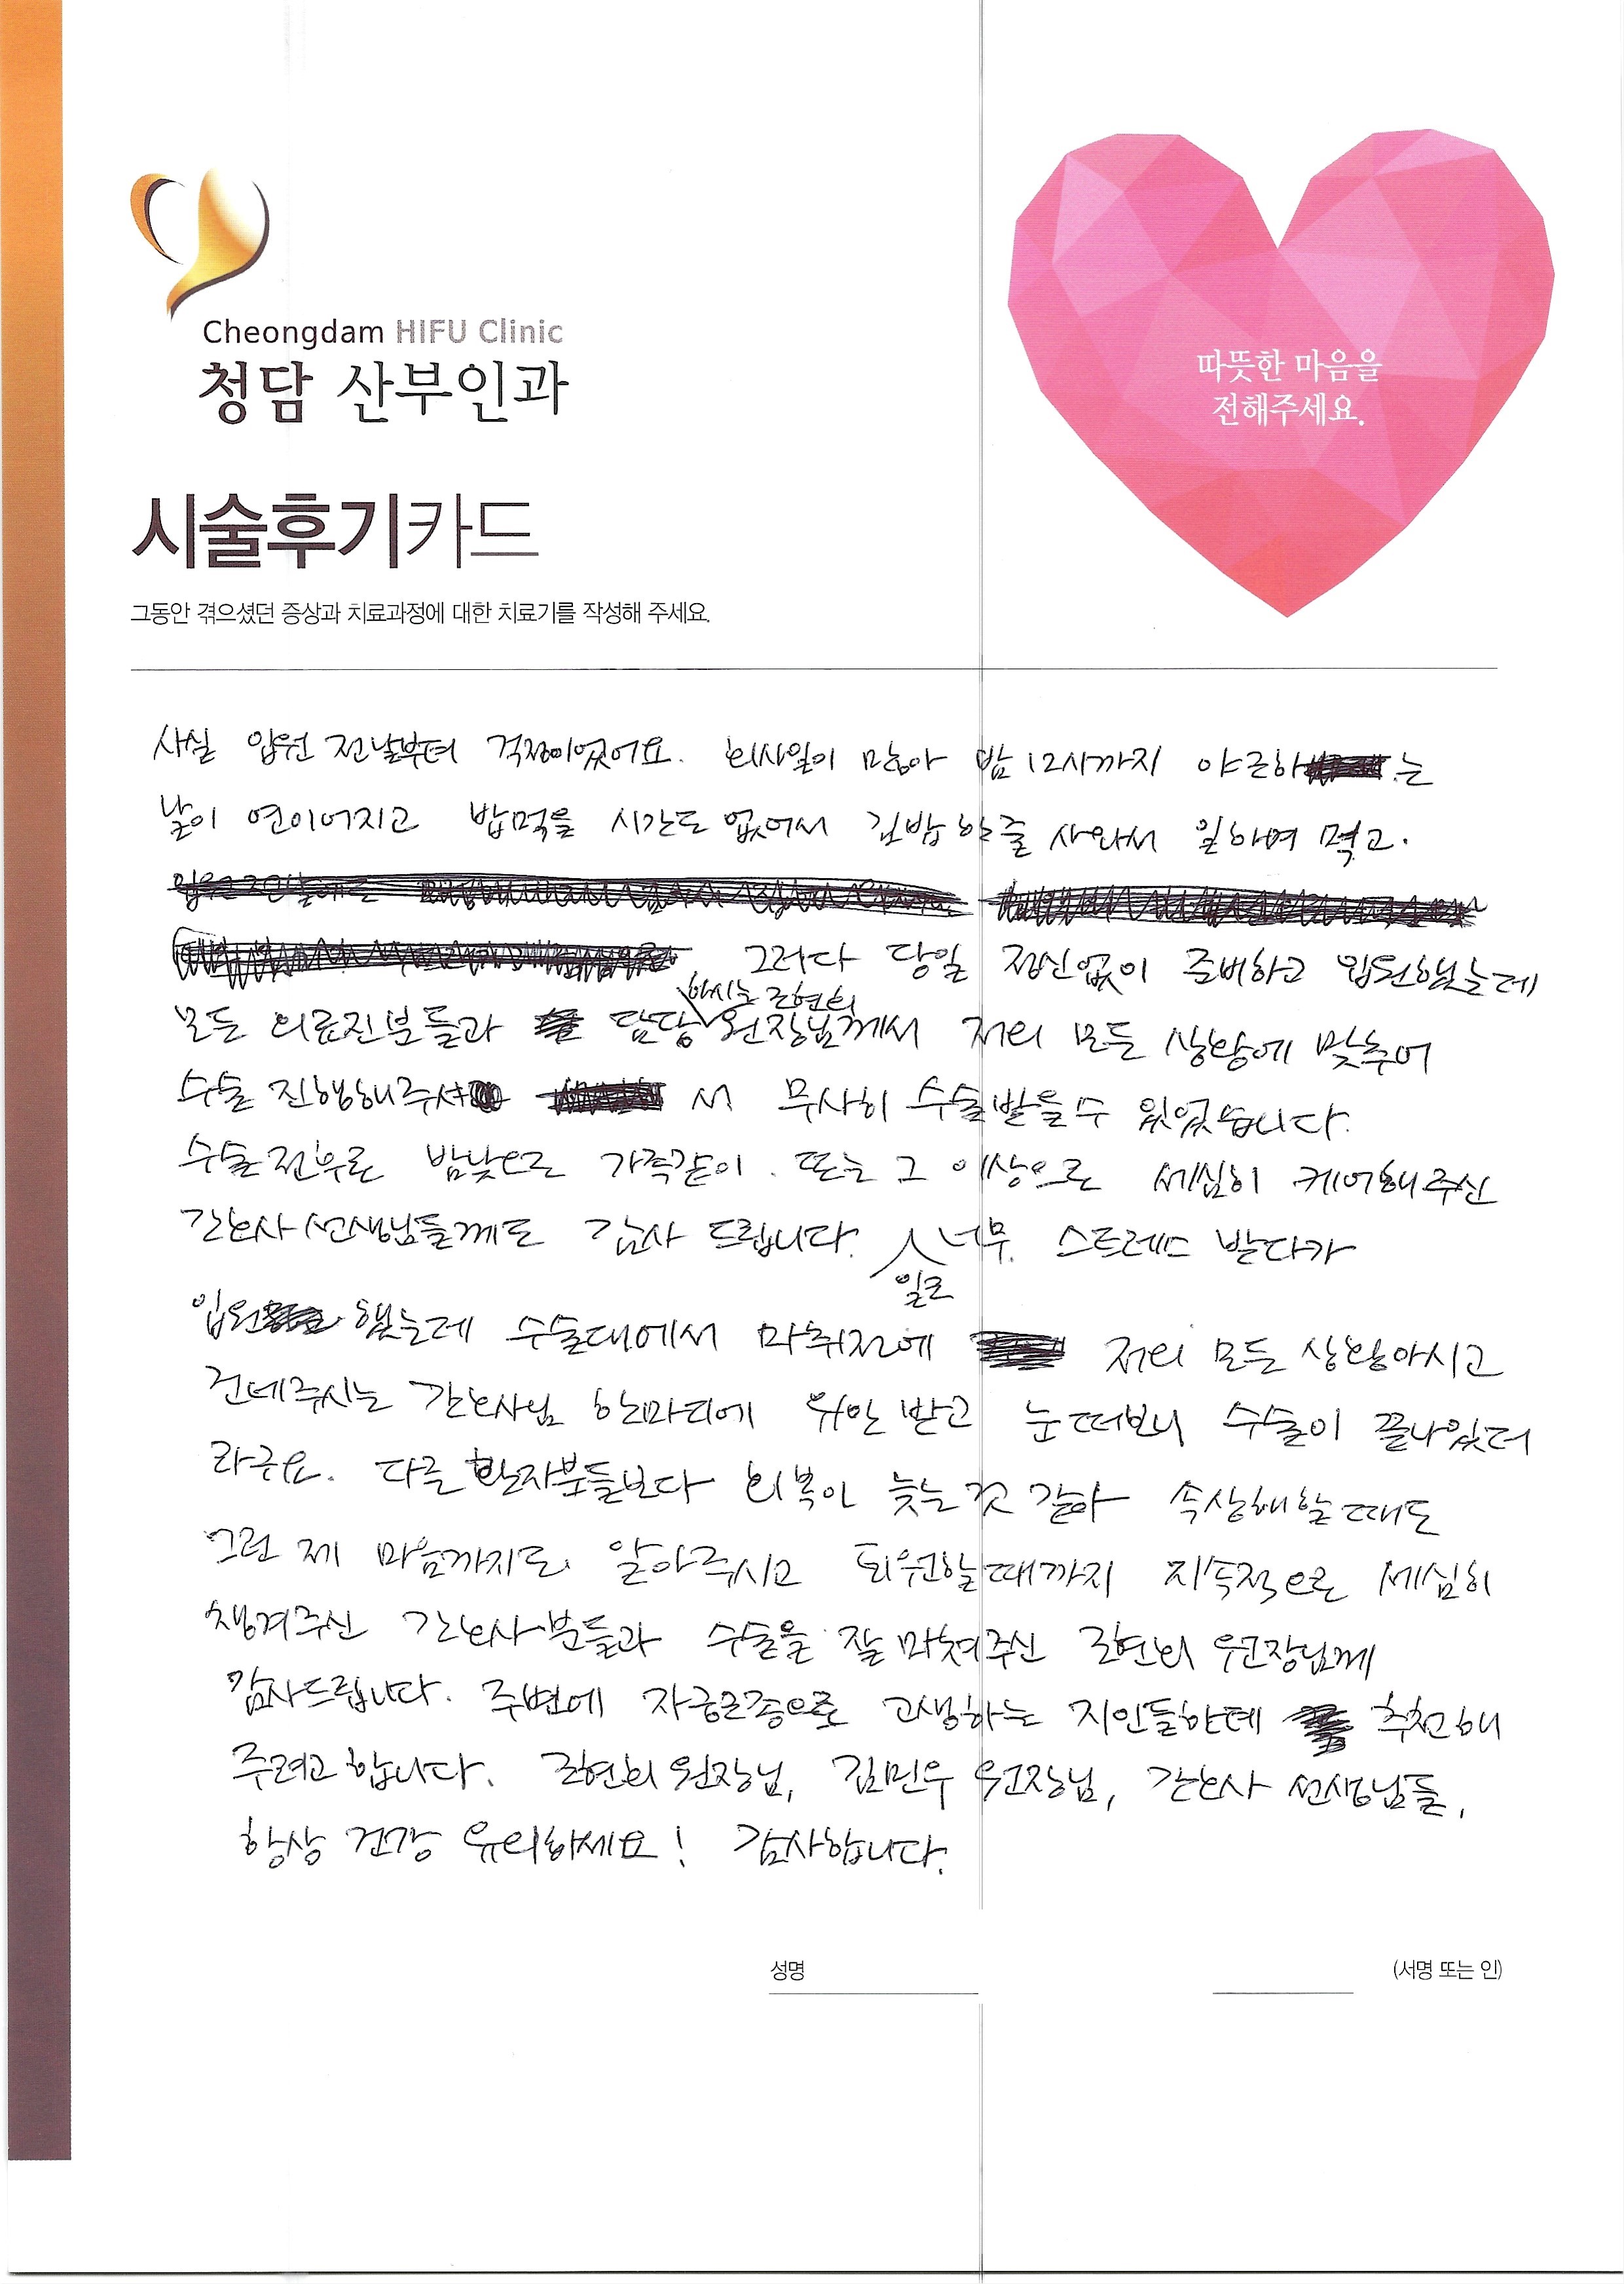 Cheongdam HIFU Clinic
청담 산부인과
따뜻한 마음을
전해주세요.
시술후기카드
그동안 겪으셨던 증상과 치료과정에 대한 치료기를 작성해 주세요.
사실 입원 전날부터 걱정이었어요. 회사일이 많아 밤 12시까지 야근하는
날이 연이어지고 밥먹을 시간도 없어서 김밥 한줄 사와서 일하며 먹고.
그러다 당일 정신없이 준비하고 입원했는데
하시는 조현희
모든 의료진분들과 담당 원장님께서 저의 모든 상황에 맞추어
수술 진행해주셔서 무사히 수술받을수 있었습니다.
수술전후로 밤낮으로 가족같이. 또는 그 이상으로 세심히 케어해주신
간호사 선생님들께도 감사 드립니다. 너무. 스트레스 받다가
일로
입원 했는데 수술대에서 마취전에 저의 모든 상황아시고
건네주시는 간호사님 한마디에 위안 받고 눈떠보니 수술이 끝나있더
라구요. 다른 환자분들보다 회복이 늦는것 같아 속상해할때도
그런 제 마음까지도 알아주시고 퇴원할때까지 지속적으로 세심히
챙겨주신 간호사분들과 수술을 잘 마쳐주신 조현희 원장님께
감사드립니다. 주변에 자궁근종으로 고생하는 지인들한테 추천해
주려고 합니다. 조현희 원장님, 김민우 원장님, 간호사 선생님들,
항상 건강 유의하세요! 감사합니다.
성명 (서명 또는 인)